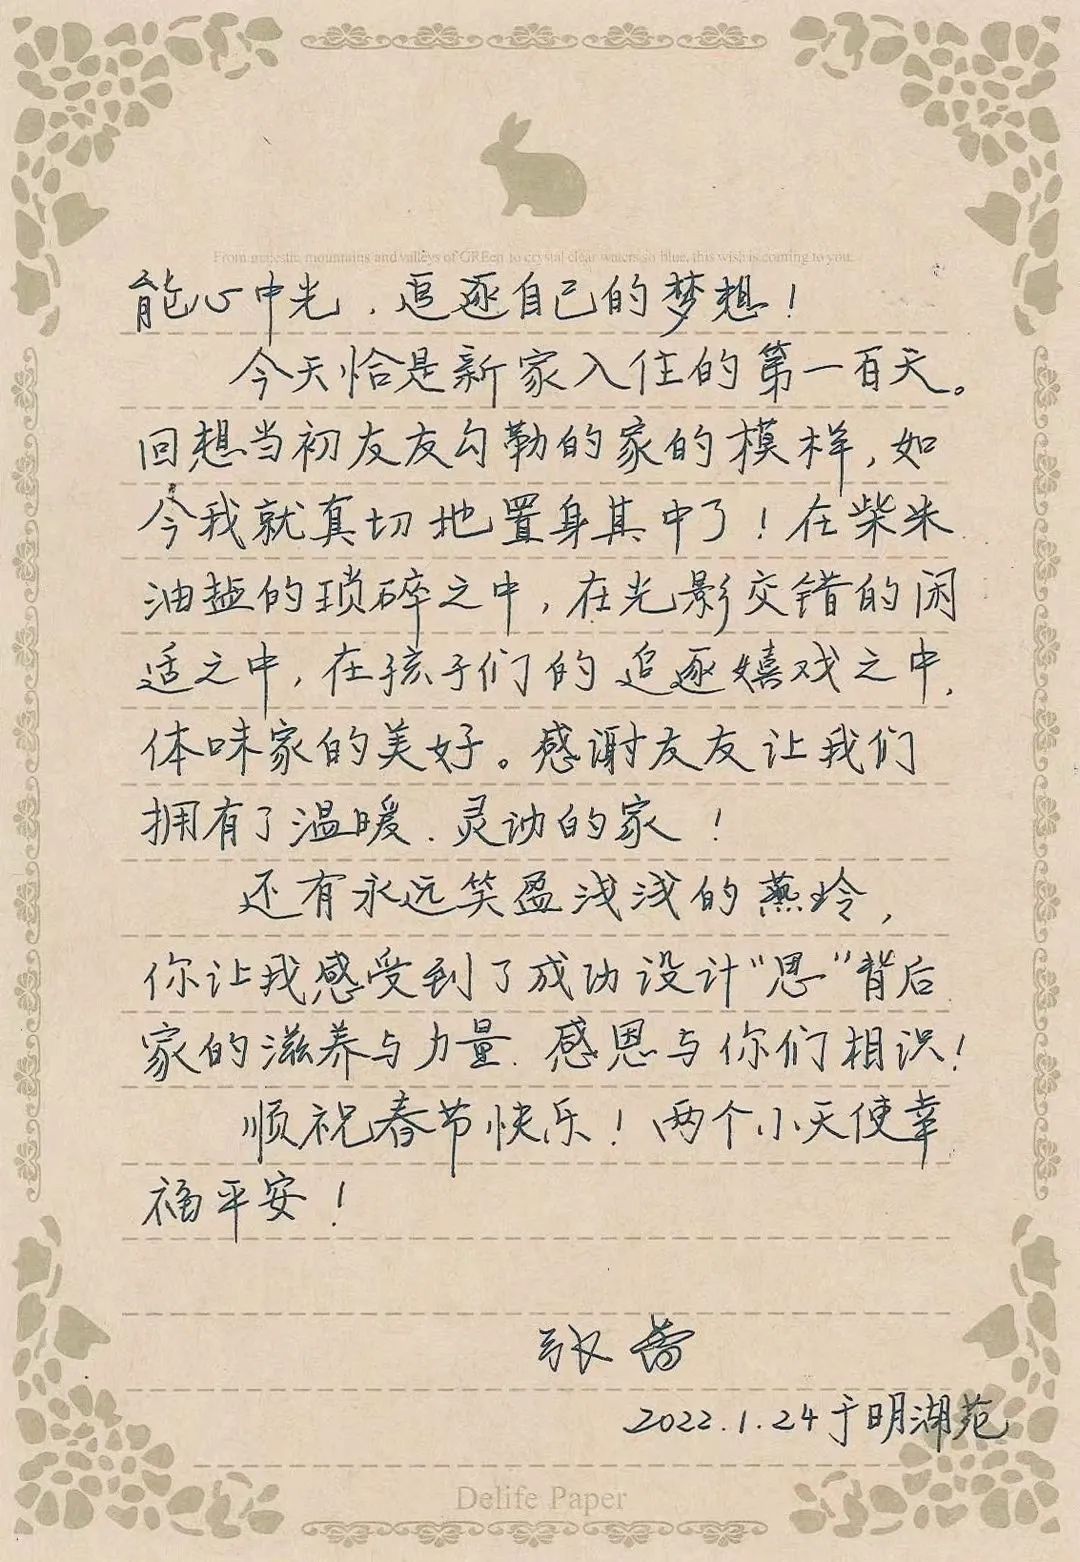 From majestic mountains and valleys of GREen to crystal clear waters so blue, this wish is coming to you.
能心中光，追逐自己的梦想！
今天恰是新家入住的第一百天。
回想当初友友勾勒的家的模样，如
今我就真切地置身其中了！在柴米
油盐的琐碎之中，在光影交错的闲
适之中，在孩子们的追逐嬉戏之中，
体味家的美好。感谢友友让我们
拥有了温暖、灵动的家！
还有永远笑盈浅浅的燕玲，
你让我感受到了成功设计“思”背后
家的滋养与力量。感恩与你们相识！
顺祝春节快乐！两个小天使幸
福平安！
张
2022.1.24于明湖苑
Delife Paper